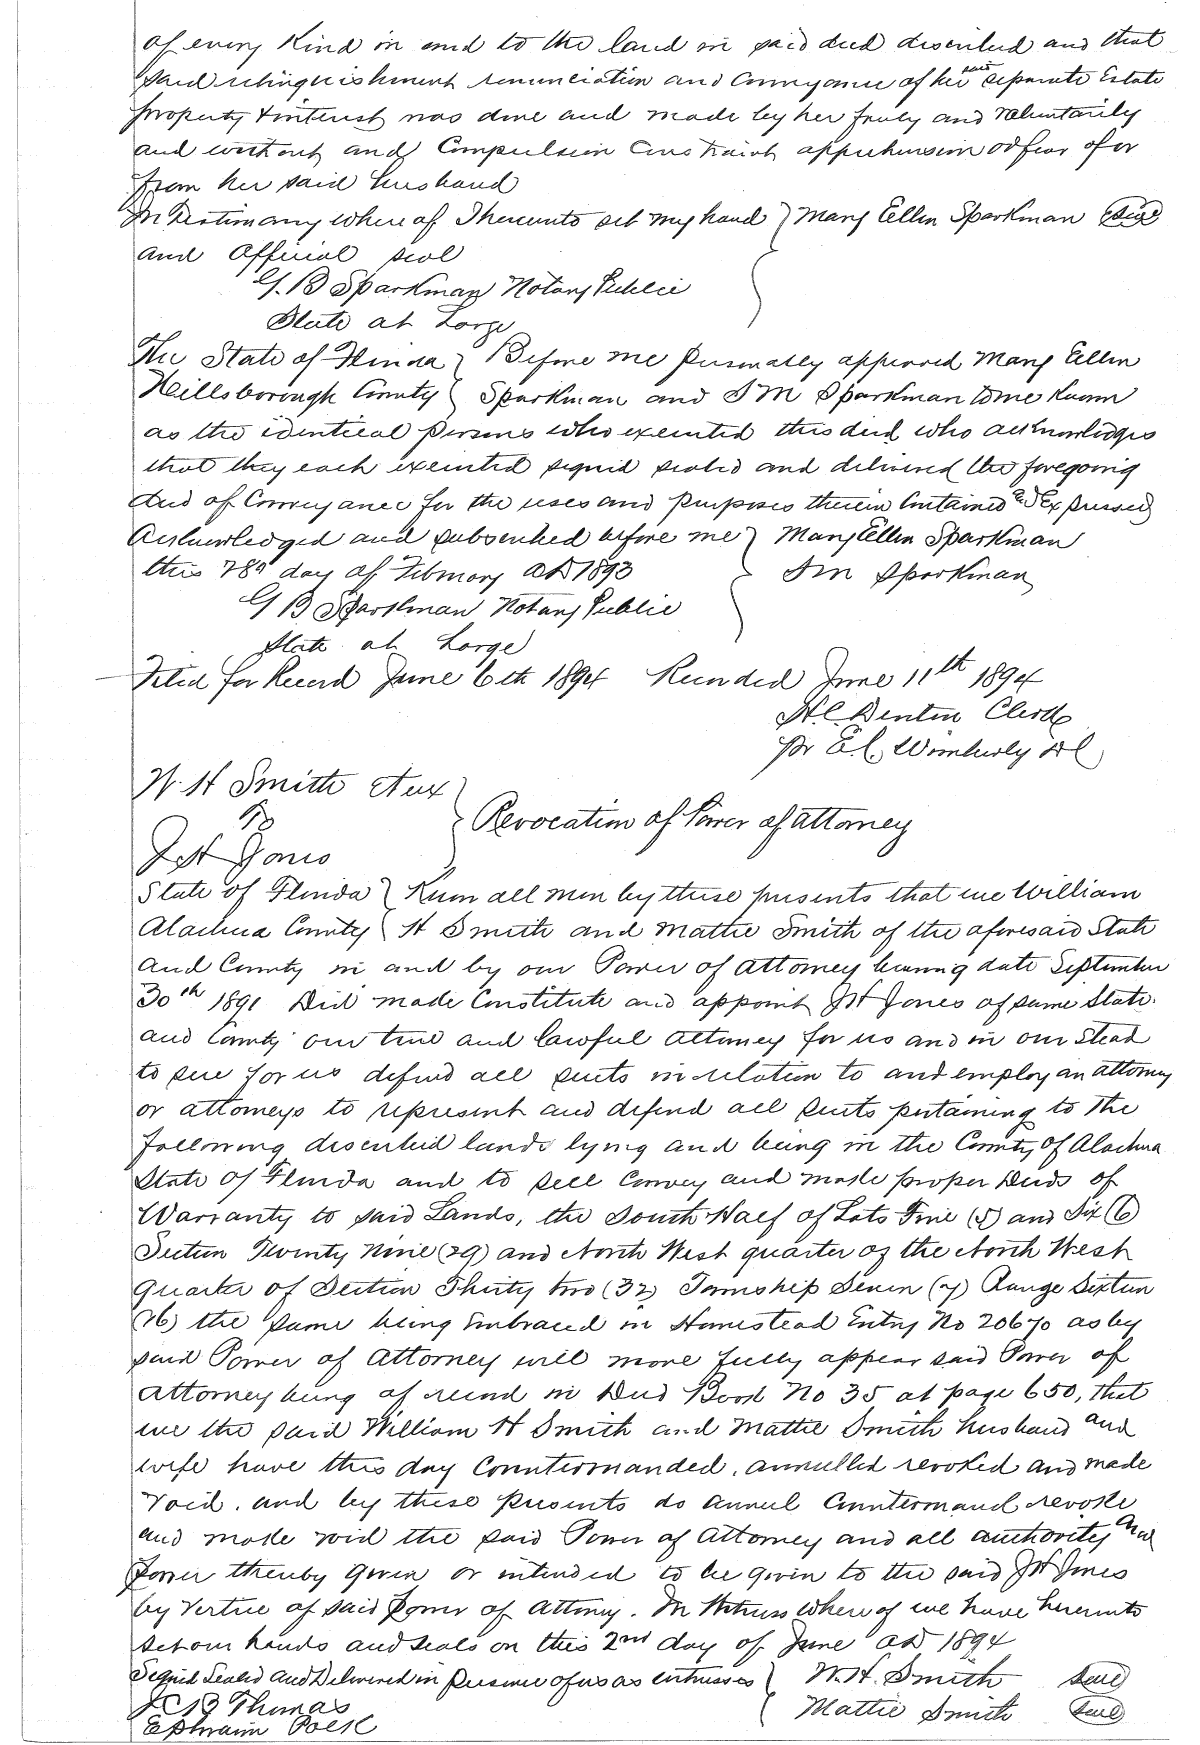 of every Kind in and to the land in said deed described and that
said relinquishment renunciation and conveyance of her said separate Estate
property & interest was done and made by her freely and voluntarily
and without and Compulsion Constraint apprehension or fear of or
from her said husband
In Testimony where of I hereunto set my hand } Mary Ellen Sparkman Seal
and Official seal
G. B Sparkman Notary Public
State at Large
The State of Florida } Before me personally appeared Mary Ellen
Hillsborough County { Sparkman and S M Sparkman to me Known
as the identical persons who executed this deed who acknowledges
that they each executed signed sealed and delivered the foregoing
deed of Conveyance for the uses and purposes therein Contained and Expressed
Acknowledged and subscribed before me } Mary Ellen Sparkman
this 28th day of February AD 1893 S M Sparkman
G B Sparkman Notary Public
State at Large
Filed for Record June 6th 1894 Recorded June 11th 1894
H. C. Denton Clerk
pr E. C. Wimberly DC
W. H Smith et ux
To } Revocation of Power of Attorney
J H Jones
State of Florida } Know all men by these presents that we William
Alachua County { H Smith and Mattie Smith of the aforesaid State
and County in and by our Power of Attorney bearing date September
30th 1891 Did made Constitute and appoint J H Jones of same State
and County our true and lawful attorney for us and in our Stead
to sue for us defend all suits in relation to and employ an attorney
or attorneys to represent and defend all suits pertaining to the
following described lands lying and being in the County of Alachua
State of Florida and to sell Convey and make proper Deeds of
Warranty to said Lands, the South Half of Lots Five (5) and Six (6)
Section Twenty Nine (29) and North West quarter of the North West
quarter of Section Thirty two (32) Township Seven (7) Range Sixteen
(16) the same being Embraced in Homestead Entry No 20670 as by
said Power of Attorney will more fully appear said Power of
Attorney being of record in Deed Book No 35 at page 650, that
we the said William H Smith and Mattie Smith husband and
wife have this day Countermanded, annulled revoked and made
Void, and by these presents do annul Countermand revoke
and make void the said Power of Attorney and all authority and
Power thereby given or intended to be given to the said J H Jones
by Vertue of said Power of Attorney. In Witness where of we have hereunto
set our hands and seals on this 2nd day of June AD 1894
Signed Sealed and Delivered in presence of us as witnesses } W. H. Smith Seal
J C B Thomas { Mattie Smith Seal
Ephraim Polk